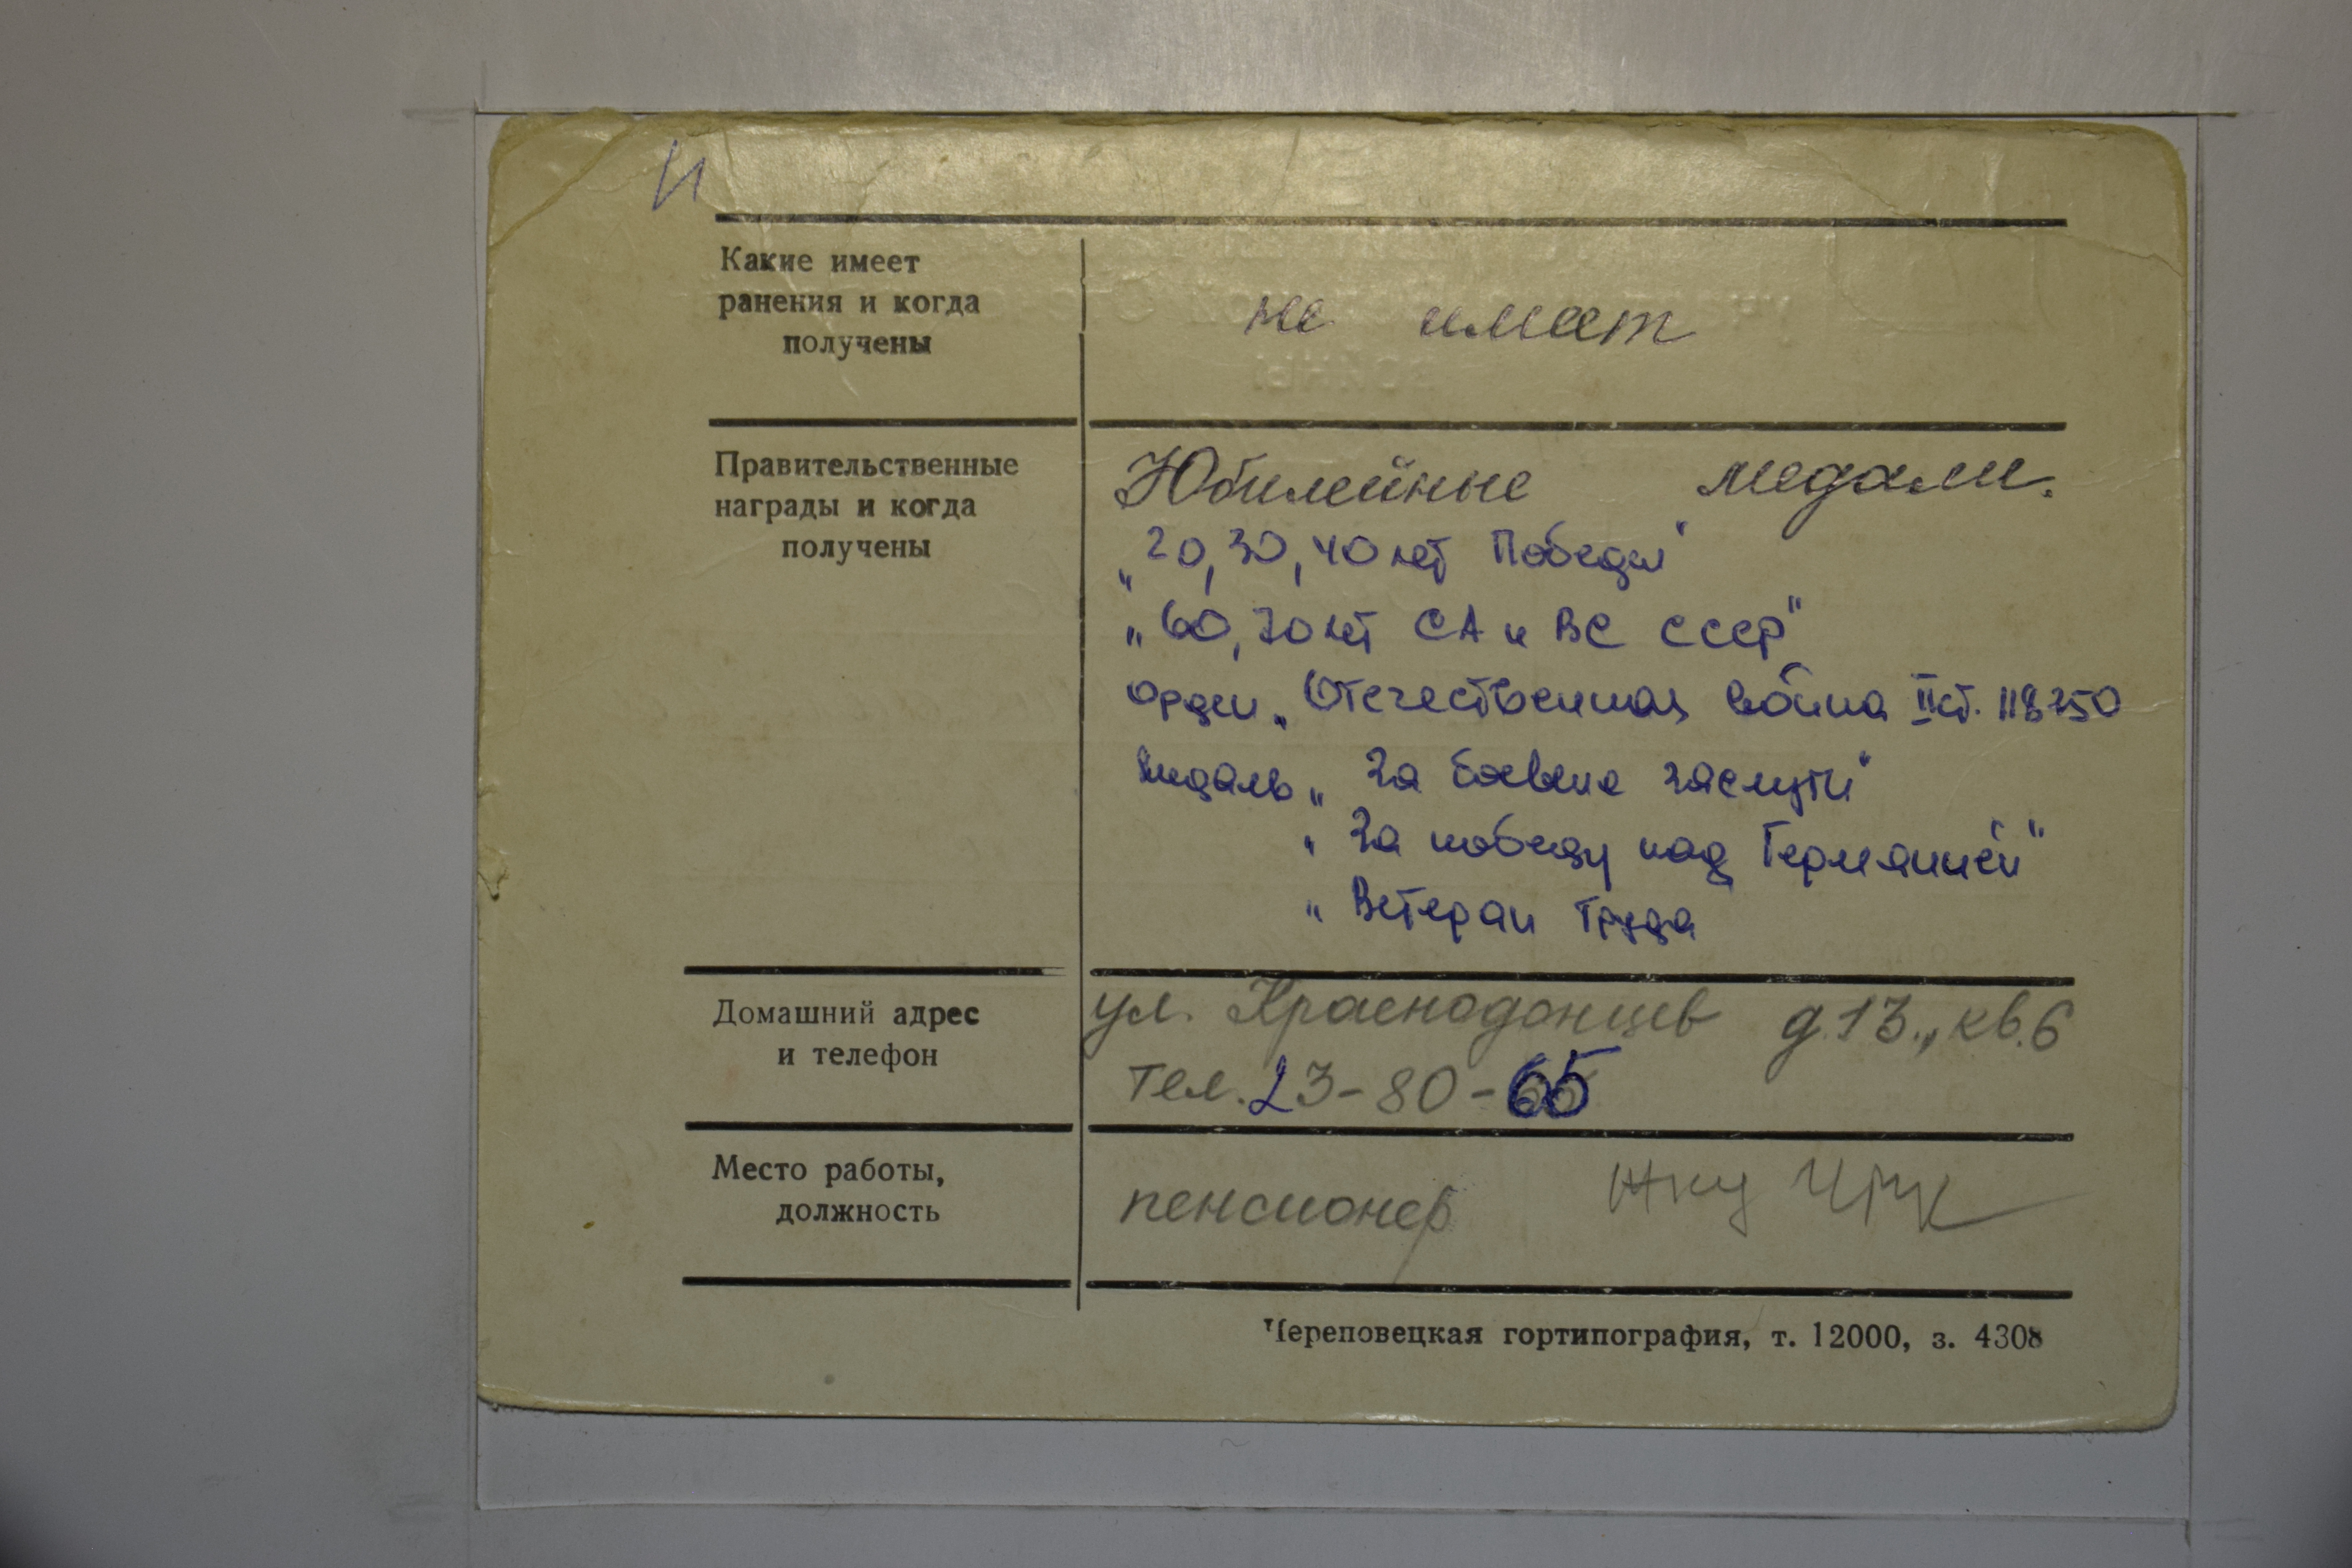 И
Какие имеет
ранения и когда
получены
не имеет
Правительственные
награды и когда
получены
Юбилейные медали.
„20, 30, 40 лет Победы"
„60, 70 лет СА и ВС СССР"
орден „Отечественная война II ст. 118250
медаль „За боевые заслуги"
„За победу над Германией"
„Ветеран Труда
Домашний адрес
и телефон
ул. Краснодонцев д.13., кв.6
тел. 23-80-65
Место работы,
должность
пенсионер ЖКУ ЧМК
Череповецкая гортипография, т. 12000, з. 4308